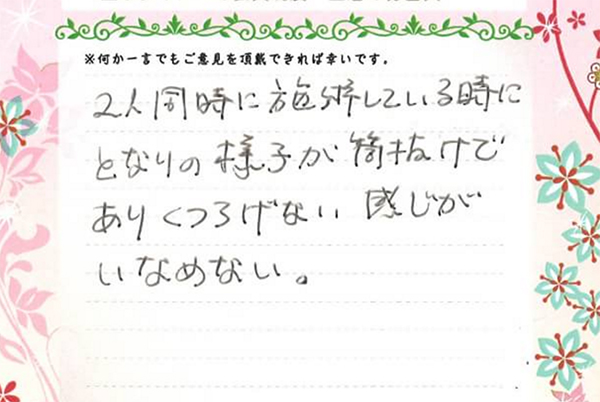 ※何か一言でもご意見を頂戴できれば幸いです。
2人同時に施術している時に
となりの様子が筒抜けで
ありくつろげない感じが
いなめない。